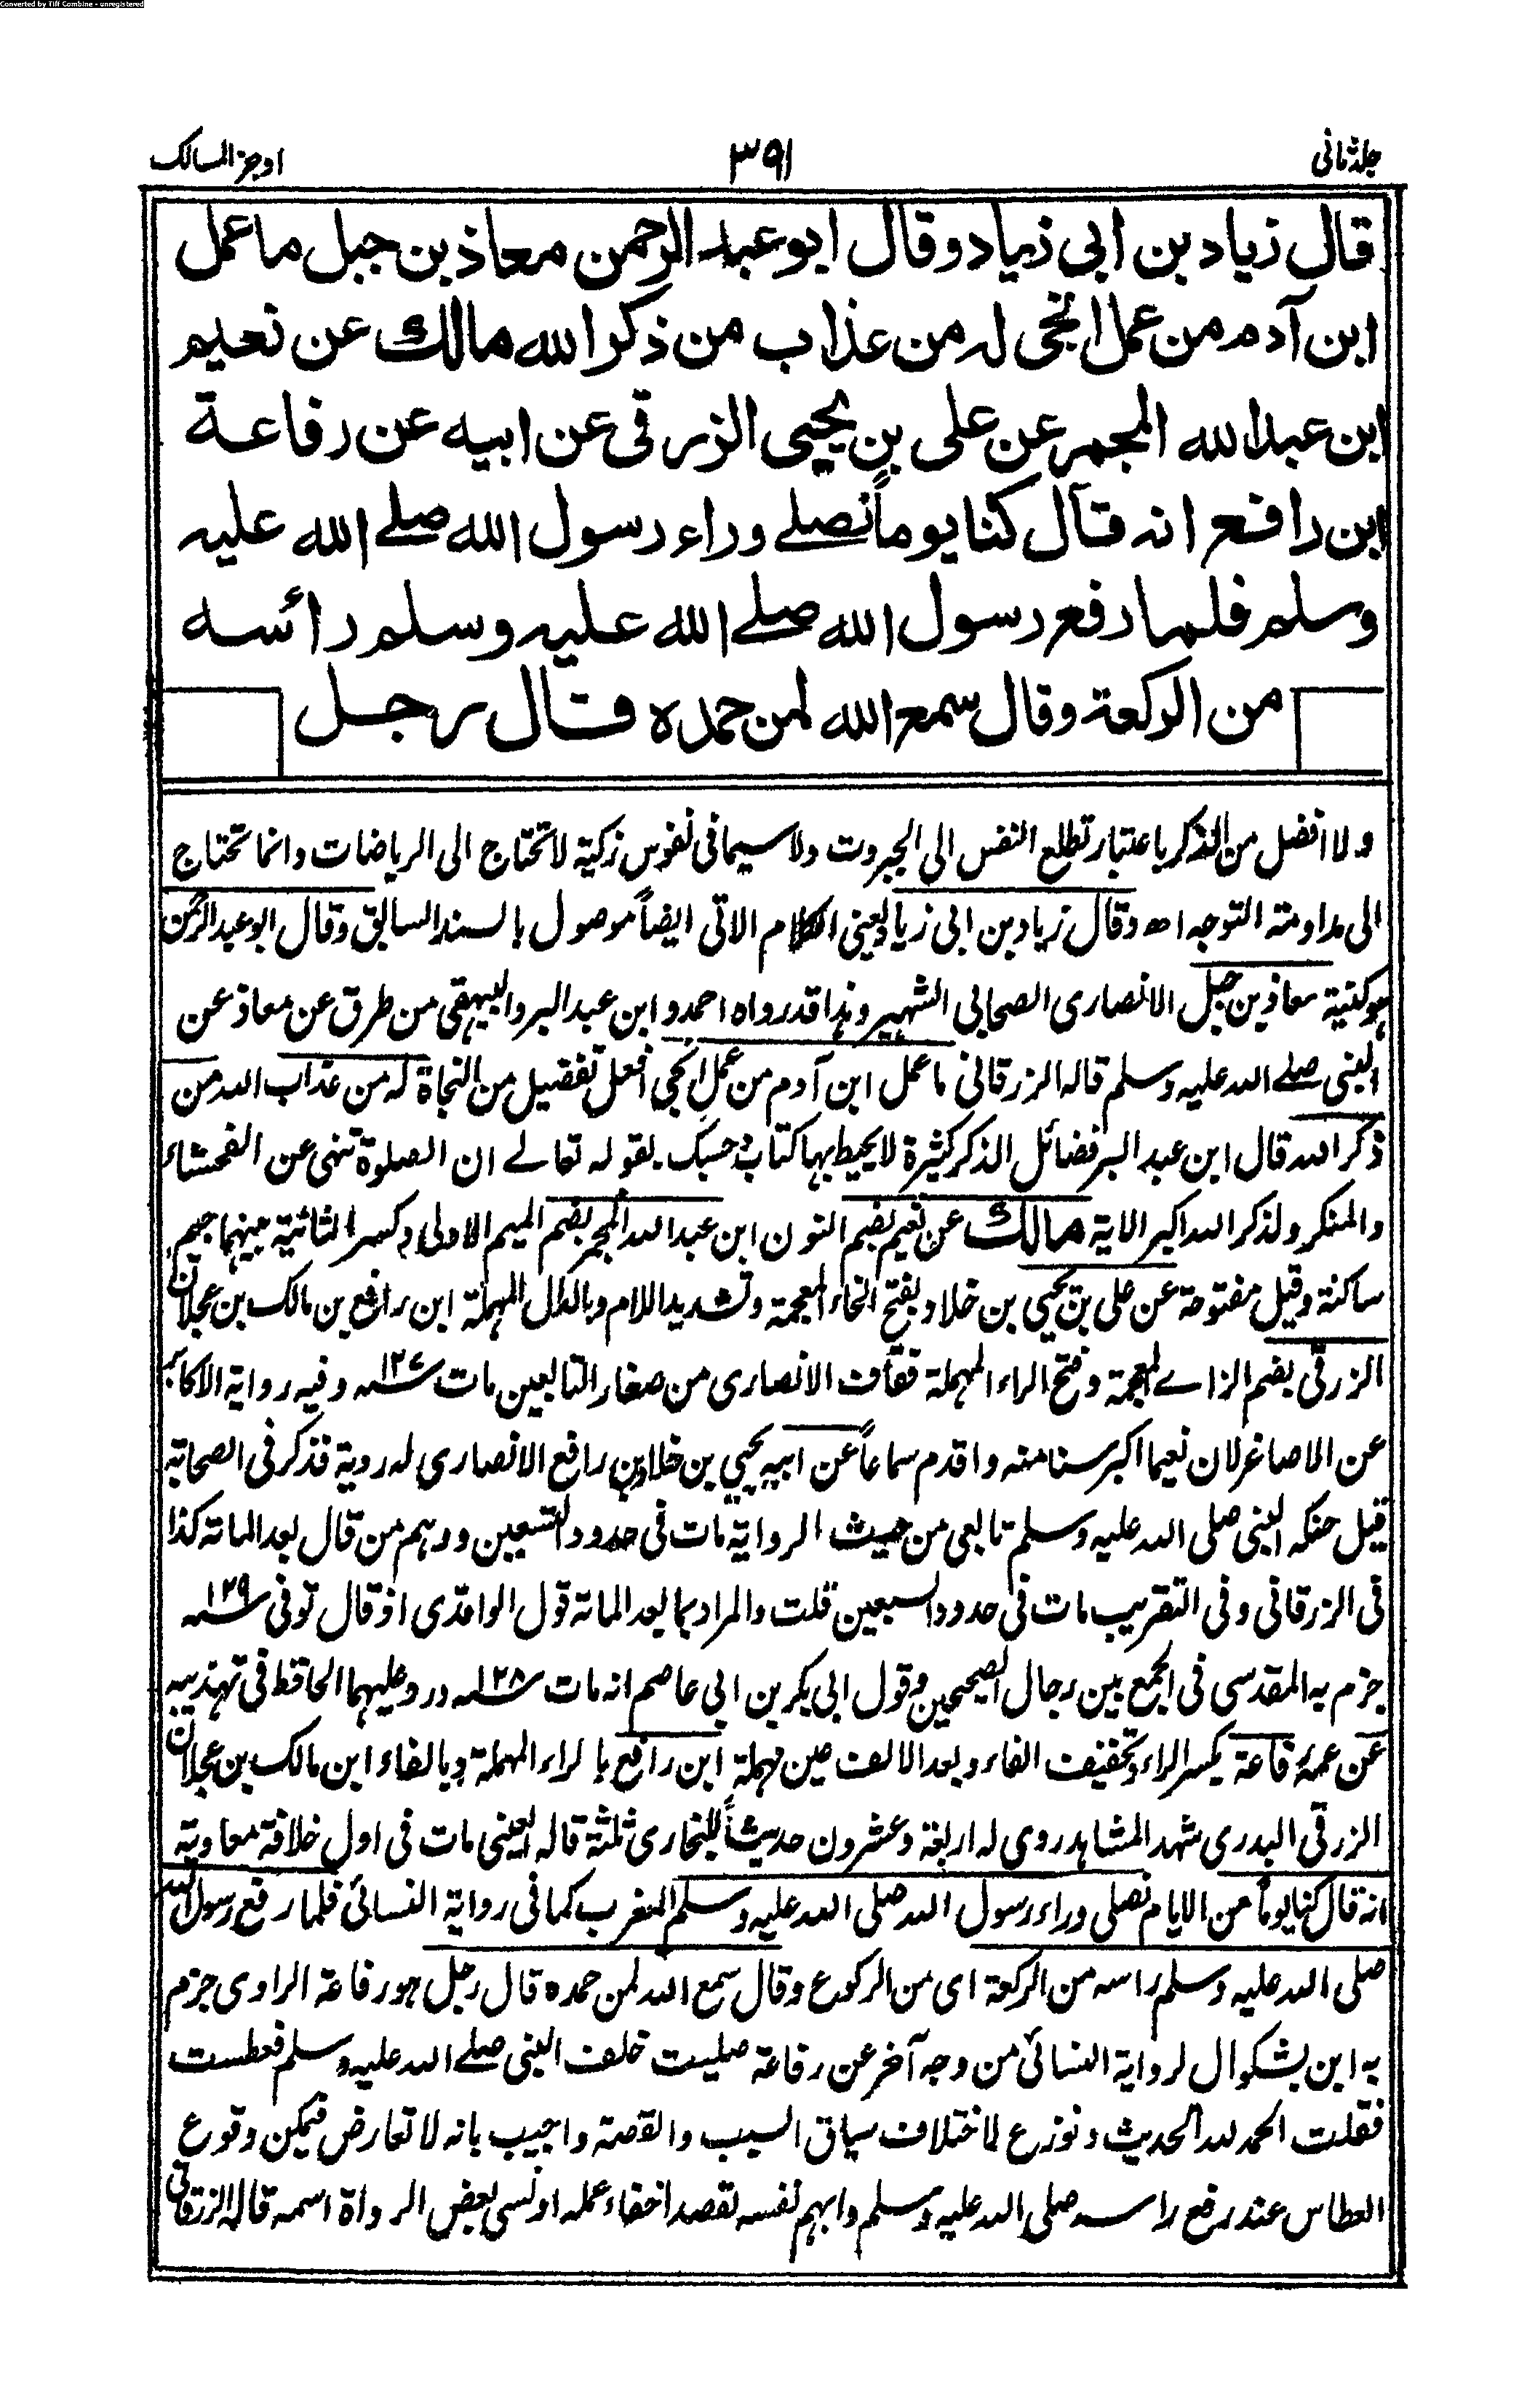 Converted by Tiff Combine - unregistered
جلد ثانی ٣٩١ اوجز المسالک
قال زياد بن ابى زياد وقال ابو عبد الرحمن معاذ بن جبل ما عمل
ابن آدم من عمل انجى له من عذاب من ذكر الله مالك عن نعيم
ابن عبد الله المجمر عن على بن يحيى الزرقى عن ابيه عن رفاعة
ابن رافع انه قال كنا يوماً نصلے وراء رسول الله صلے الله عليه
وسلم فلما رفع رسول الله صلے الله عليه وسلم رائسه
من الركعة وقال سمع الله لمن حمده قال رجل
ولا افضل من الذكر باعتبار تطلع النفس الى الجبروت ولا سيما فى نفوس زكية لا تحتاج الى الرياضات وانما تحتاج
الى مداومته التوجه اھ وقال زياد بن ابى زياد يعنى الكلام الاتى ايضاً موصول بالسند السابق وقال ابو عبد الرحمن
هو كنية معاذ بن جبل الانصارى الصحابى الشهير وهذا قد رواه احمد و ابن عبد البر والبيهقى من طرق عن معاذ عن
النبى صلے الله عليه وسلم قاله الزرقانى ما عمل ابن آدم من عمل انجى افعل تفضيل من النجاة له من عذاب الله من
ذكر الله قال ابن عبد البر فضائل الذكر كثيرة لا يحيط بها كتاب وحسبك بقوله تعالے ان الصلوة تنهى عن الفحشاء
والمنكر ولذكر الله اكبر الاية مالك عن نعيم بضم النون ابن عبد الله المجمر بضم الميم الاولى وكسر الثانية بينهما جيم
ساكنة وقيل مفتوحة عن على بن يحيى بن خلاد بفتح الخاء المعجمة وتشديد اللام وبالدال المهملة ابن رافع بن مالك بن عجلان
الزرقى بضم الزاے المعجمة وفتح الراء المهملة فقاف الانصارى من صغار التابعين مات سنه ١٢٧ وفيه رواية الاكابر
عن الاصاغر لان نعيما اكبر سنا منه واقدم سماعاً عن ابيه يحيى بن خلاد بن رافع الانصارى له روية فذكر فى الصحابة
قيل حنكه النبى صلى الله عليه وسلم تابعى من حيث الرواية مات فى حدود التسعين ووهم من قال بعد المائة كذا
فى الزرقانى وفى التقريب مات فى حدود السبعين قلت والمراد بما بعد المائة قول الواقدى اذ قال توفى سنه ١٢٩
جزم به المقدسى فى الجمع بين رجال الصحيحين وقول ابى بكر بن ابى عاصم انه مات سنه ١٢٨ ورد عليهما الحافظ فى تهذيبه
عن عمه رفاعة بكسر الراء وتخفيف الفاء وبعد الالف عين مهملة ابن رافع بالراء المهملة وبالفاء ابن مالك بن عجلان
الزرقى البدرى شهد المشاهد روى له اربعة وعشرون حديثاً للبخارى ثلثة قاله العينى مات فى اول خلافة معاوية
انه قال كنا يوماً من الايام نصلى وراء رسول الله صلى الله عليه وسلم المغرب كما فى رواية النسائى فلما رفع رسول الله
صلى الله عليه وسلم راسه من الركعة اى من الركوع وقال سمع الله لمن حمده قال رجل هو رفاعة الراوى جزم
به ابن بشكوال لرواية النسائى من وجه آخر عن رفاعة صليت خلف النبى صلے الله عليه وسلم فعطست
فقلت الحمد لله الحديث ونوزع لاختلاف سياق السبب والقصة واجيب بانه لا تعارض فيمكن وقوع
العطاس عند رفع راسه صلى الله عليه وسلم وابهم نفسه لقصد اخفاء عمله او نسى بعض الرواة اسمه قاله الزرقانى